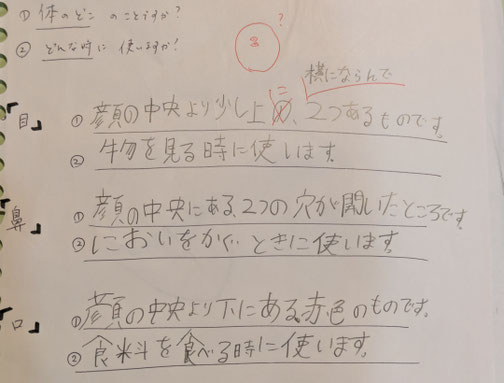 ① 体のどこ のことですか?
② どんな時に 使いますか!
?
横にならんで
に
「目」 ① 顔の中央より少し上の、2つあるものです。
② 物を見る時に使います。
「鼻」 ① 顔の中央にある、2つの穴が開いたところです。
② においをかぐ ときに使います。
「口」 ① 顔の中央より下にある、赤色のものです。
② 食料を食べる時に使います。